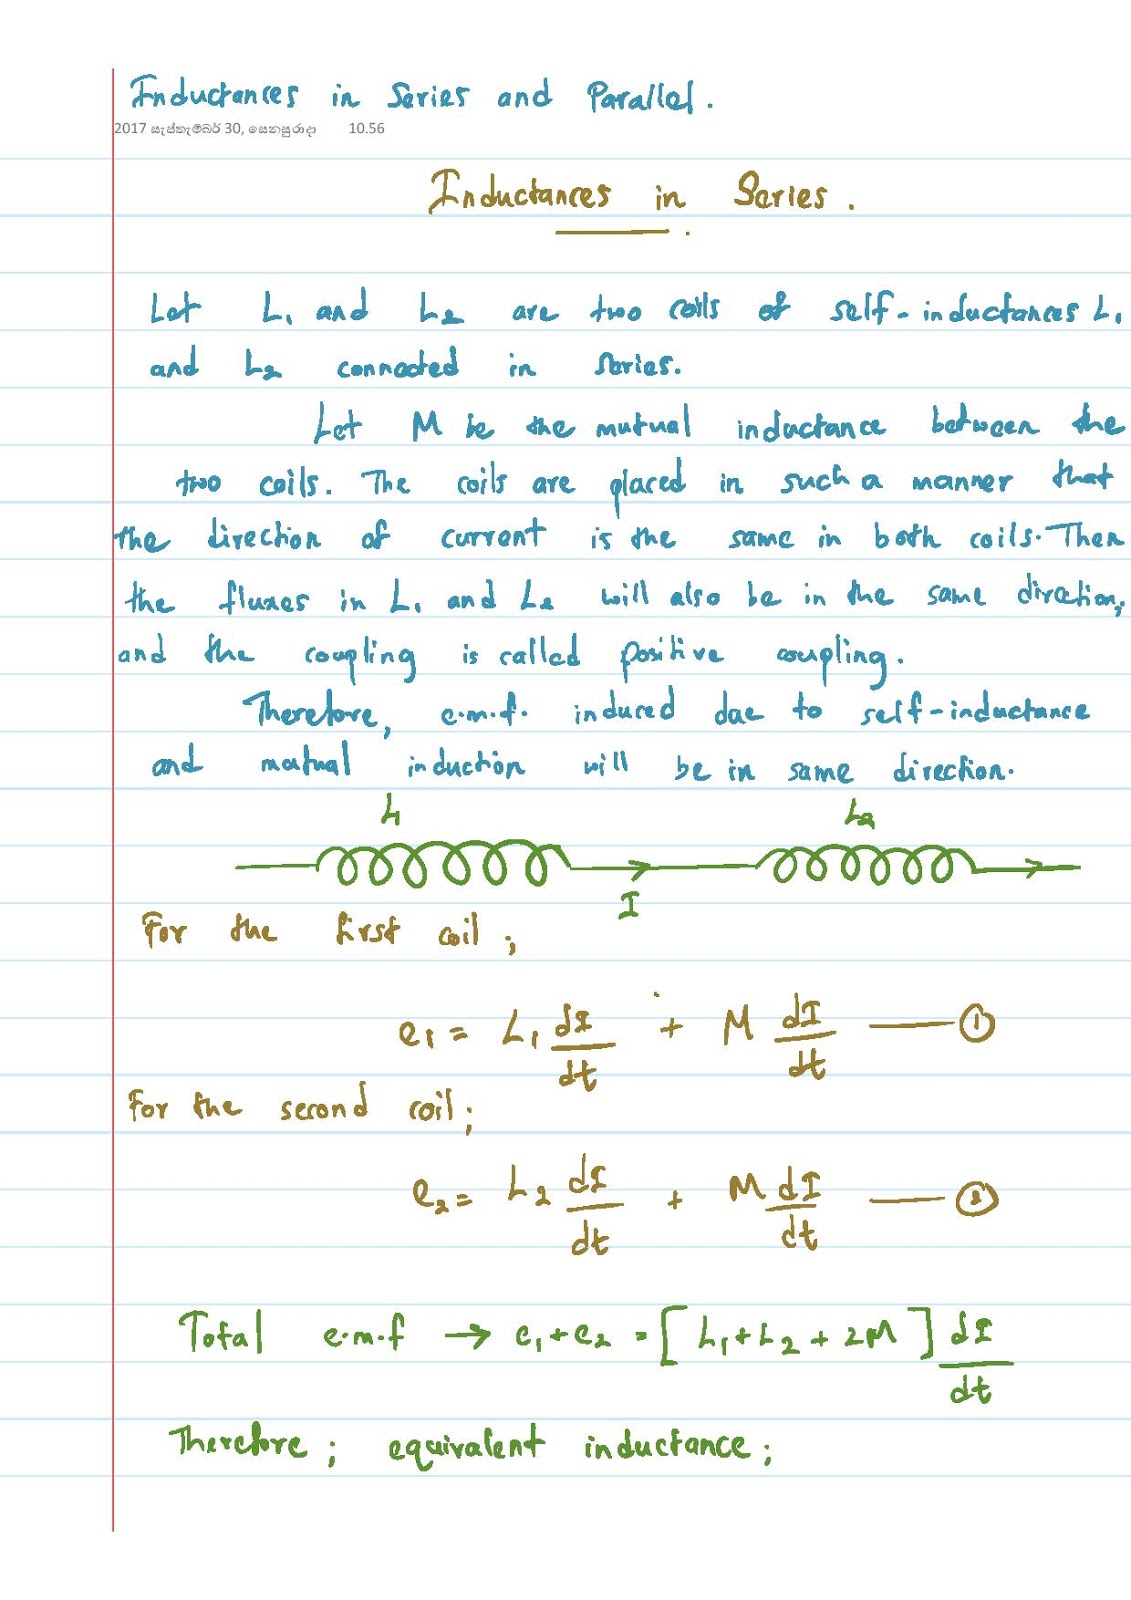 Inductances in Series and Parallel.
2017 සැප්තැම්බර් 30, සෙනසුරාදා 10.56
Inductances in Series.
Let L₁ and L₂ are two coils of self-inductances L₁
and L₂ connected in series.
Let M be the mutual inductance between the
two coils. The coils are placed in such a manner that
the direction of current is the same in both coils. Then
the fluxes in L₁ and L₂ will also be in the same direction,
and the coupling is called positive coupling.
Therefore, e.m.f. induced due to self-inductance
and mutual induction will be in same direction.
L₁ L₂
I
For the first coil;
e₁ = L₁ dI/dt + M dI/dt —— ①
For the second coil;
e₂ = L₂ dI/dt + M dI/dt —— ②
Total e.m.f → e₁+e₂ = [L₁+L₂+2M] dI/dt
Therefore; equivalent inductance;